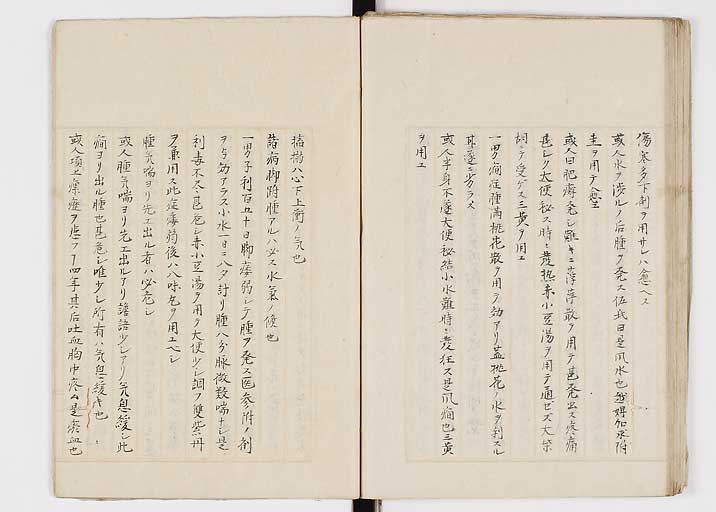 傷寒多下剤ヲ用サレハ愈ヘス
或人水ヲ渉ルノ后腫ヲ発ス佐氏曰是風水也越婢加朮附
圭ヲ用テ愈ユ
或人曰肥癬発シ難キニ浮萍散ヲ用テ甚発出ス疼痛
甚シク大便秘ス時々発熱赤小豆湯ヲ用テ通ゼズ大柴
胡ニテ受ケス三黄ヲ用エ
一男癇症腫満桃花散ヲ用テ効アリ蓋桃花ノ水ヲ利スル
其遂ニ劣ラス
或人半身不遂大便秘結小水難時々発狂ス是風癇也三黄
ヲ用エ
搐搦ハ心下上衝ノ気也
諸病脚跗腫アルハ必ス水気ノ候也
一男子利百五十日脚痿弱シテ腫ヲ発ス医参附ノ剤
ヲ与効アラス小水一日ニ八夕計リ腫八分脉微数喘ナシ是
利毒不尽甚危シ赤小豆湯ヲ用テ大便少シ調フ雙紫丹
ヲ兼用ス此症毒弱後ハ八味丸ヲ用エヘシ
腫気喘ヨリ先エ出ル者ハ必危シ
或人腫気喘ヨリ先エ出ルアリ譫語少シアリ気息緩シ此
癇ヨリ出ル腫也甚危シ唯少シ所有ハ気息ノ緩キ也
或人項上瘰癧ヲ患フヿ四年其后吐血胸中疼ム是瘀血也